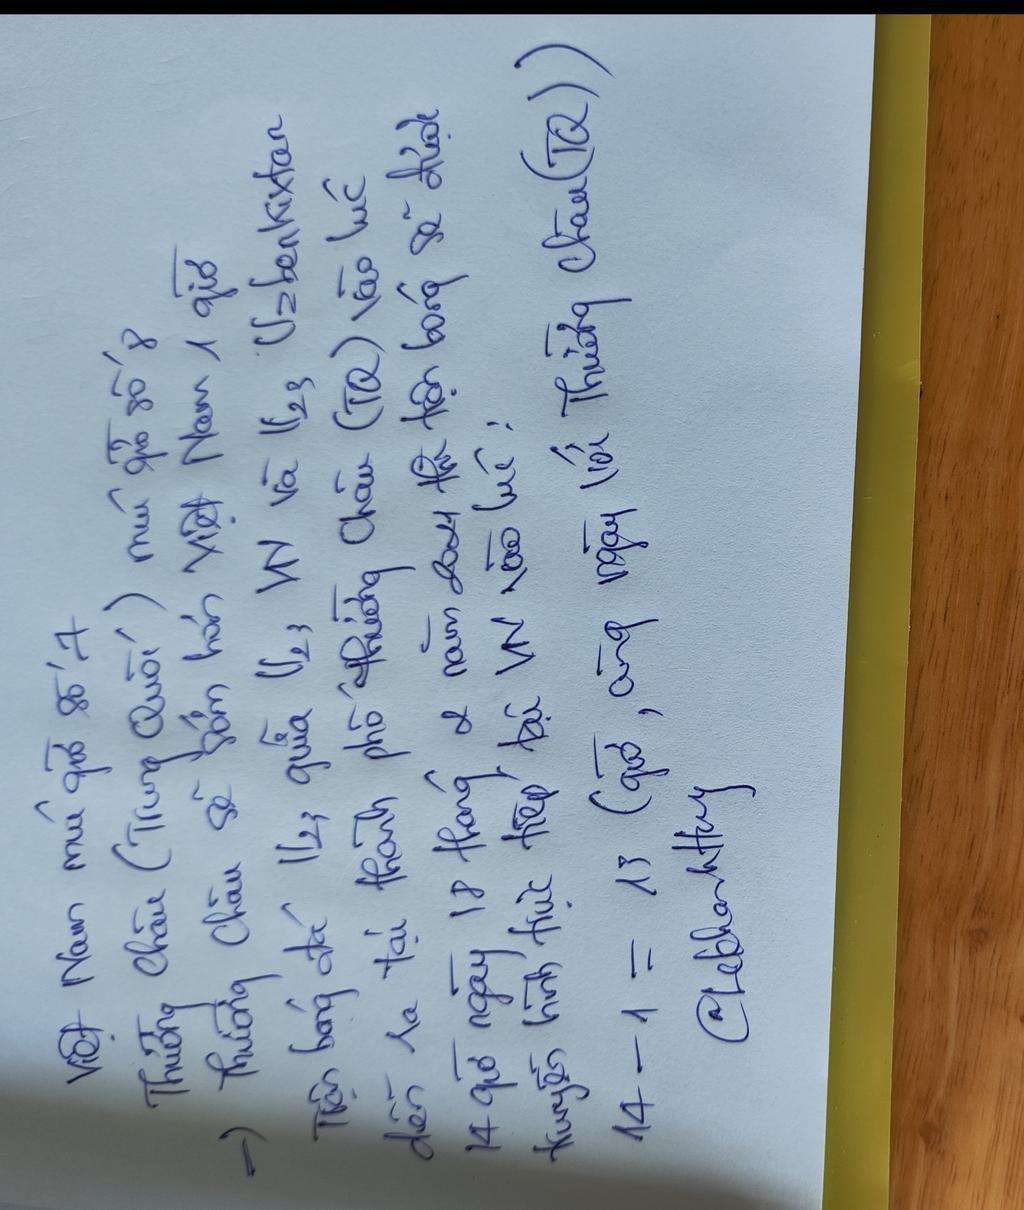 Việt Nam múi giờ số 7
Thường Châu (Trung Quốc) múi giờ số 8
→) Thường Châu sẽ sớm hơn Việt Nam 1 giờ
Trận bóng đá U23 giữa U23 VN và U23 Uzbenkixtan
diễn ra tại thành phố thường Châu (TQ) vào lúc
14 giờ ngày 18 tháng 2 năm 2024 thì trận bóng sẽ được
truyền hình trực tiếp tại VN vào lúc:
14 - 1 = 13 (giờ, cùng ngày với Thường Châu (TQ))
@LeKhanhHuy